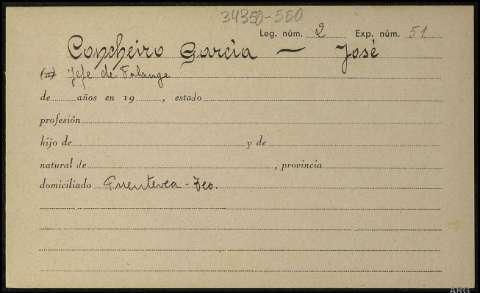 34350-550
Leg. núm. 2 Exp. núm. 51
Concheiro García — José
Jefe de Falange
de años en 19 , estado
profesión
hijo de y de
natural de , provincia
domiciliado Puentevea - Teo.
ARG